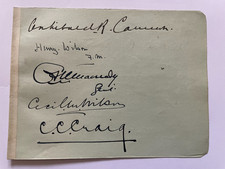 Archibald R. Cameron.
Henry Wilson
F.M.
Genl.
Cecil M Wilson
C.C. Craig.